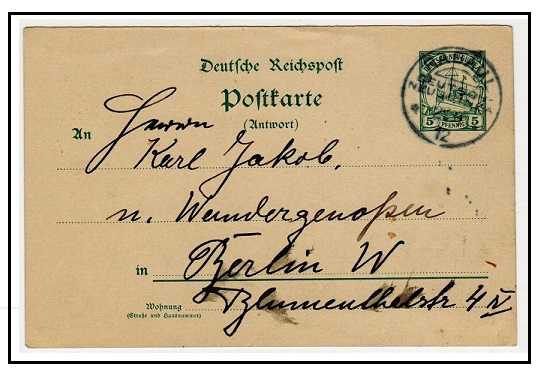 Deutsche Reichspost
Postkarte
(Antwort)
An Herrn
Karl Jakob,
n. Wandergenoßen
in Berlin W
Wohnung Blumenthelstr 4 IV
(Straße und Hausnummer)
5 PFENNIG 5
12